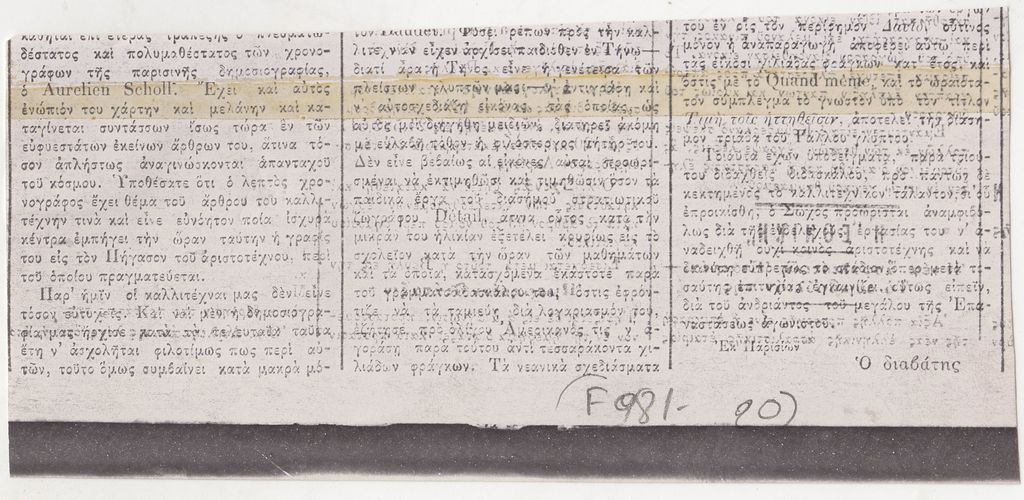 κάθηται ἐπὶ ἑτέρας τραπέζης ὁ πνευματω-
δέστατος καὶ πολυμαθέστατος τῶν χρονο-
γράφων τῆς παρισινῆς δημοσιογραφίας,
ὁ Aurelien Scholl. Ἔχει καὶ αὐτὸς
ἐνώπιόν του χάρτην καὶ μελάνην καὶ κα-
ταγίνεται συντάσσων ἴσως τώρα ἓν τῶν
εὐφυεστάτων ἐκείνων ἄρθρων του, ἅτινα τό-
σον ἀπλήστως ἀναγινώσκονται ἁπανταχοῦ
τοῦ κόσμου. Ὑποθέσατε ὅτι ὁ λεπτὸς χρο-
νογράφος ἔχει θέμα τοῦ ἄρθρου του καλλι-
τέχνην τινὰ καὶ εἶνε εὐνόητον ποῖα ἰσχυρὰ
κέντρα ἐμπήγει τὴν ὥραν ταύτην ἡ γραφίς
του εἰς τὸν Πήγασον τοῦ ἀριστοτέχνου, περὶ
τοῦ ὁποίου πραγματεύεται.
Παρ' ἡμῖν οἱ καλλιτέχναι μας δὲν εἶνε
τόσον εὐτυχεῖς. Καὶ ναὶ μὲν ἡ δημοσιογρα-
φία μας ἤρχισε κατὰ τὰ τελευταῖα ταῦτα
ἔτη ν' ἀσχολῆται φιλοτίμως πως περὶ αὐ-
τῶν, τοῦτο ὅμως συμβαίνει κατὰ μακρὰ μό-
τὸν Daudet. Φύσει ῥέπων πρὸς τὴν καλ-
λιτεχνίαν εἶχεν ἀρχίσει παιδιόθεν ἐν Τήνῳ—
διατὶ ἆρα ἡ Τῆνος εἶνε ἡ γενέτειρα τῶν
πλείστων γλυπτῶν μας; — ἢ ἀντιγράφῃ καὶ
ν' αὐτοσχεδιάζῃ εἰκόνας, τὰς ὁποίας, ὡς
αὐτός μοι διηγήθη μειδιῶν, διατηρεῖ ἀκόμη
μὲ εὐλαβῆ πόθον ἡ φιλόστοργος μήτηρ του.
Δὲν εἶνε βεβαίως αἱ εἰκόνες αὗται προωρι-
σμέναι νὰ ἐκτιμηθῶσι καὶ τιμηθῶσιν ὅσον τὰ
παιδικὰ ἔργα τοῦ διασήμου στρατιωτικοῦ
ζωγράφου Détail, ἅτινα οὗτος κατὰ τὴν
μικράν του ἡλικίαν ἐξετέλει κρυφίως εἰς τὸ
σχολεῖον κατὰ τὴν ὥραν τῶν μαθημάτων
καὶ τὰ ὁποῖα, κατασχόμενα ἑκάστοτε παρὰ
τοῦ γραμματοδιδασκάλου του, ὅστις ἐφρόν-
τιζε νὰ τὰ ταμιεύῃ διὰ λογαριασμόν του,
ἐζήτησε πρὸ ὀλίγου Ἀμερικανός τις ν' ἀ-
γοράσῃ παρὰ τούτου ἀντὶ τεσσαράκοντα χι-
λιάδων φράγκων. Τὰ νεανικὰ σχεδιάσματα
του ἐν οἷς τὸν περίφημον Δαυΐδ, οὗτινος
μόνον ἡ ἀναπαραγωγὴ ἀποφέρει αὐτῷ περὶ
τὰς εἴκοσι χιλιάδας φράγκων κατ' ἔτος, καὶ
ὅστις μὲ τὸ Quand même, καὶ τὸ ὡραιότα-
τον σύμπλεγμα τὸ γνωστὸν ὑπὸ τὸν τίτλον
Τιμὴ τοῖς ἡττηθεῖσιν, ἀποτελεῖ τὴν διάση-
μον τριάδα τοῦ Γάλλου γλύπτου.
Τοιαῦτα ἔχων ὑποδείγματα, παρὰ τοιού-
του διδαχθεὶς διδασκάλου, πρὸ παντὸς δὲ
κεκτημένος τὸ καλλιτεχνικὸν τάλαντον, εἰ οὗ
ἐπροικίσθη, ὁ Σῶχος προώρισται ἀναμφιβό-
λως διὰ τῆς ἐνδελεχοῦς ἐργασίας του ν' ἀ-
ναδειχθῇ οὐχὶ κοινὸς ἀριστοτέχνης καὶ νὰ
τὸ στάδιον, ὅπερ μετὰ το-
σαύτης ἐπιτυχίας ἐγκαινίζει, οὕτως εἰπεῖν,
διὰ τοῦ ἀνδριάντος τοῦ μεγάλου τῆς Ἐπα-
ναστάσεως ἀγωνιστοῦ.
Ἐκ Παρισίων
Ὁ διαβάτης
(F981- 90)